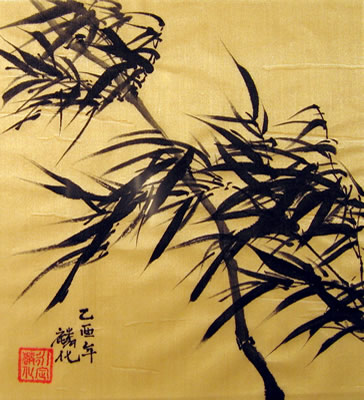 乙酉年
麟化